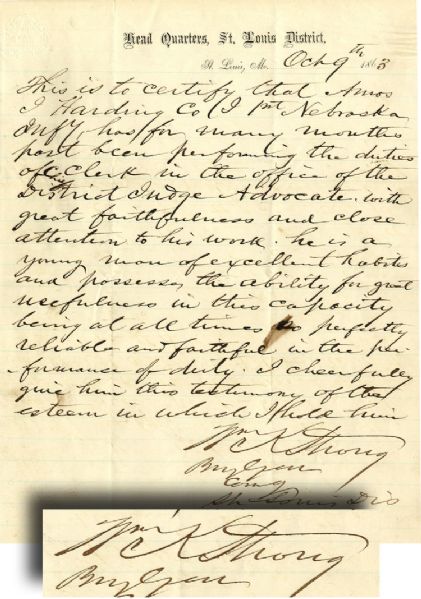 Head Quarters, St. Louis District,
St. Louis, Mo. Oct 9th 1863
This is to certify that Amos
J Harding Co I 1st Nebraska
Infy has for many months
past been performing the duties
of Clerk in the office of the
District Judge Advocate. with
great faithfulness and close
attention to his work. he is a
young man of excellent habits
and possesses the ability for great
usefulness in this capacity
being at all times so perfectly
reliable and faithful in the per
-formance of duty. I cheerfully
give him this testimony of the
esteem in which I hold him
Wm K Strong
Brig Gen
Comg
St Louis Dis
Wm K Strong
Brig Gen